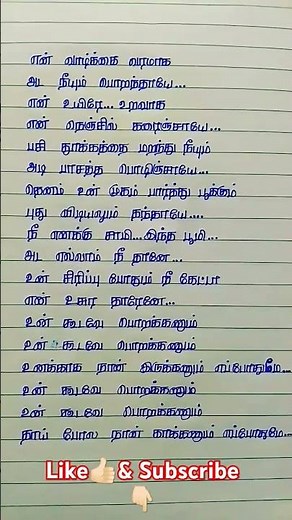 என் வாழ்க்கை வரமாக
அட நீயும் பொறந்தாயே...
என் உயிரே... உறவாக
என் நெஞ்சில் கரைஞ்சாயே...
பசி தூக்கத்தை மறந்து நீயும்
அடி பாசத்த பொழிஞ்சாயே...
தெனம் உன் முகம் பார்த்து பூக்கும்
புது விடியலும் தந்தாயே....
நீ எனக்கு சாமி... இந்த பூமி...
அட எல்லாம் நீ தானே...
உன் சிரிப்பு போதும் நீ கேட்டா
என் உசுர தாரேனே...
உன் கூடவே பொறக்கணும்
உன் கூடவே பொறக்கணும்
உனக்காக நான் இருக்கணும் எப்போதுமே...
உன் கூடவே பொறக்கணும்
உன் கூடவே பொறக்கணும்
தாய் போல நான் காக்கணும் எப்போதுமே...
Like👍🏻& Subscribe
👇🏻